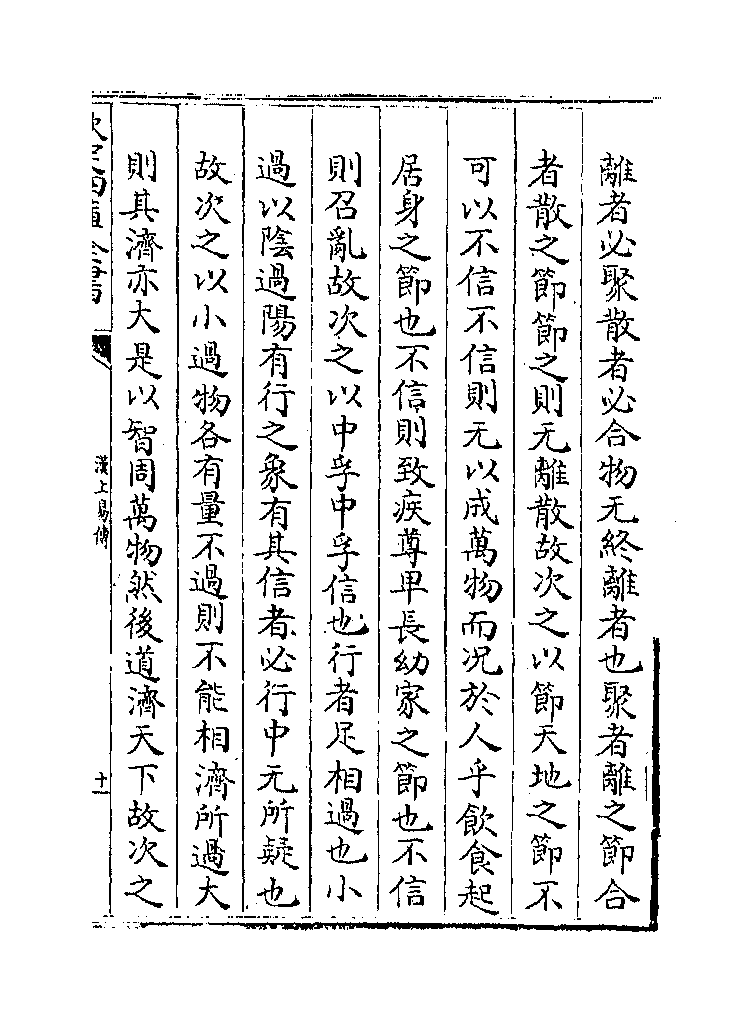 離者必聚散者必合物无終離者也聚者離之節合
者散之節節之則无離散故次之以節天地之節不
可以不信不信則无以成萬物而况於人乎飲食起
居身之節也不信則致疾尊卑長幼家之節也不信
則召亂故次之以中孚中孚信也行者足相過也小
過以陰過陽有行之象有其信者必行中无所疑也
故次之以小過物各有量不過則不能相濟所過大
則其濟亦大是以智周萬物然後道濟天下故次之
欽定四庫全書
漢上易傳
十一